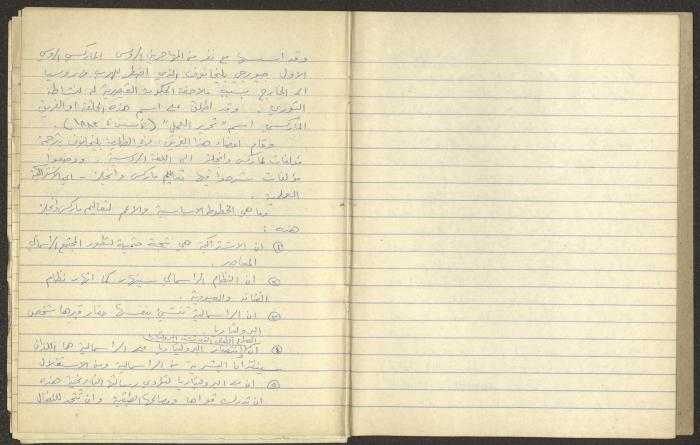 وقد اسسها مع نفر من المهاجرين الروس الماركسي الروسي
الاول جيورجي بليخانوف الذي اضطر للهرب من روسيا
الى الخارج بسبب ملاحقة الحكومة القيصرية له لنشاطه
الثوري . وقد اطلق على اسم هذه الحلقة او الفريق
الماركسي اسم "تحرير العمل" (تأسس ١٨٨٣) .
وقام اعضاء هذا الفريق وفي الطليعة بليخانوف بترجمة
مؤلفات لماركس وانجلز الى اللغة الروسية . ووضعوا
مؤلفات شرحوا فيها تعاليم ماركس وانجلز - اي الاشتراكية
العلمية .
وما هي الخطوط الاساسية والاعم لتعاليم ماركس وانجلز
هذه :
① ان الاشتراكية هي نتيجة حتمية لتطور المجتمع الرأسمالي
المعاصر .
② ان النظام الراسمالي سينهار كما انهار نظام
القنانة والعبودية .
③ ان الراسمالية تنشئ بنفسها حفار قبرها شخص
البروليتاريا
④ ان انتصار البروليتاريا على الراسمالية هما اللذان
سينقذان البشرية من الراسمالية ومن الاستغلال
⑤ ان على البروليتاريا لتؤدي رسالتها التاريخية هذه
ان تدرك قواها ومصالحها الطبقية وان تتحد للنضال